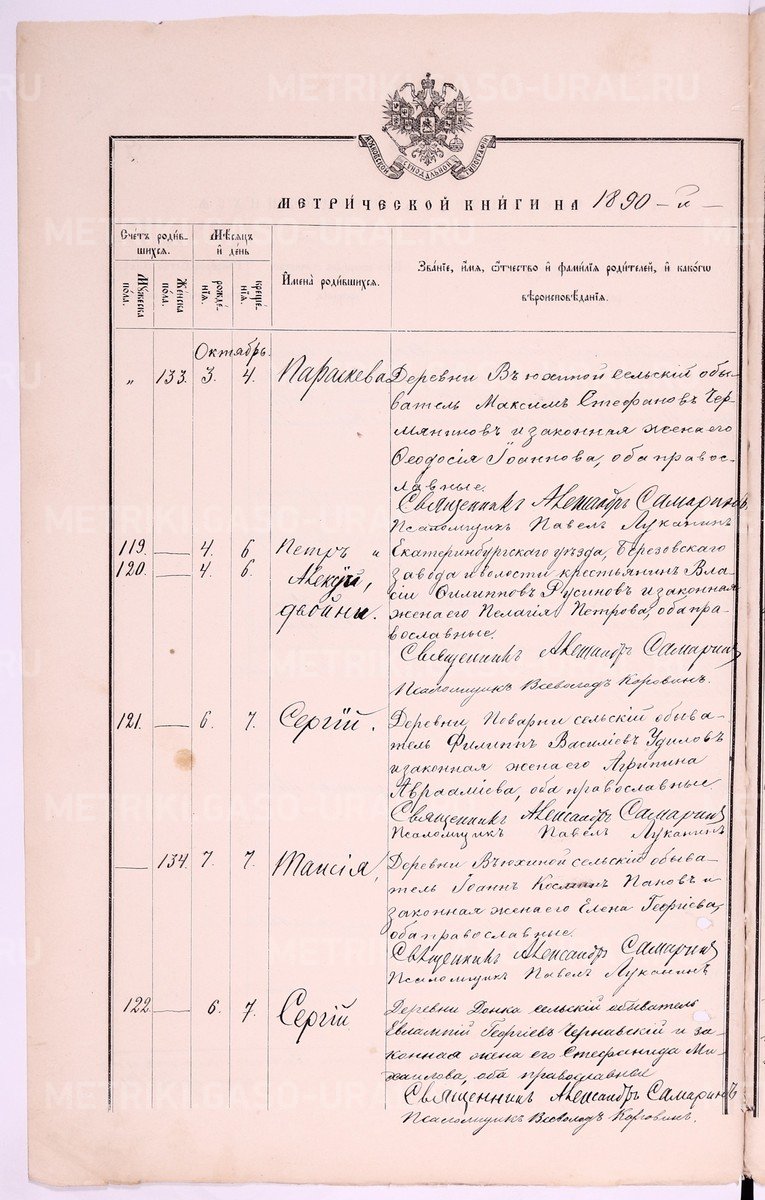 МОСКОВСКОЙ СѴНОДАЛЬНОЙ ТИПОГРАФІИ
МЕТРИ́ЧЕСКОЙ КНИ́ГИ НА 1890-й
Сче́тъ роди́в-
шихся.
Му́жеска
по́ла.
Же́нска
по́ла.
Мѣ́сяцъ
и҆ де́нь
рожде́-
нїя.
креще́-
нїя.
И҆мена̀ роди́вшихся.
Зва́нїе, и҆́мя, ѻ҆́тчество и҆ фами́лїя роди́телей, и҆ како́гѡ
вѣроисповѣ́данїя.
Октябрь.
„ 133. 3. 4. Параскева Деревни Вьюхиной сельскій обы-
ватель Максимъ Стефановъ Чер-
мяниновъ и законная жена его
Ѳеодосія Іоаннова, оба правос-
лавные.
Священникъ Александръ Самаринъ
Псаломщикъ Павелъ Луканинъ
119. — 4. 6. Петръ и Екатеринбургскаго уѣзда, Березовскаго
120. — 4. 6. Алексій, завода и волости крестьянинъ Вла-
сій Филипповъ Русиновъ и законная
двойни. жена его Пелагія Петрова, оба пра-
вославные.
Священникъ Александръ Самаринъ
Псаломщикъ Всеволодъ Коровинъ.
121. — 6. 7. Сергій. Деревни Поварни сельскій обыва-
тель Филиппъ Василіевъ Удиловъ
и законная жена его Агрипина
Авраамієва, оба православные
Священникъ Александръ Самаринъ
Псаломщикъ Павелъ Луканинъ
— 134. 7. 7. Таисія, Деревни Вьюхиной сельскій обыва-
тель Іоаннъ Косминъ Пановъ и
законная жена его Елена Георгіева,
оба православные.
Священникъ Александръ Самаринъ
Псаломщикъ Павелъ Луканинъ
122 — 6. 7. Сергій Деревни Донка сельскій обыватель
Евлампій Георгіевъ Чернавскій и за-
конная жена его Стефанида Ми-
хаилова, оба православные
Священникъ Александръ Самаринъ
Псаломщикъ Всеволодъ Коровинъ.
METRIKI.GASO-URAL.RU